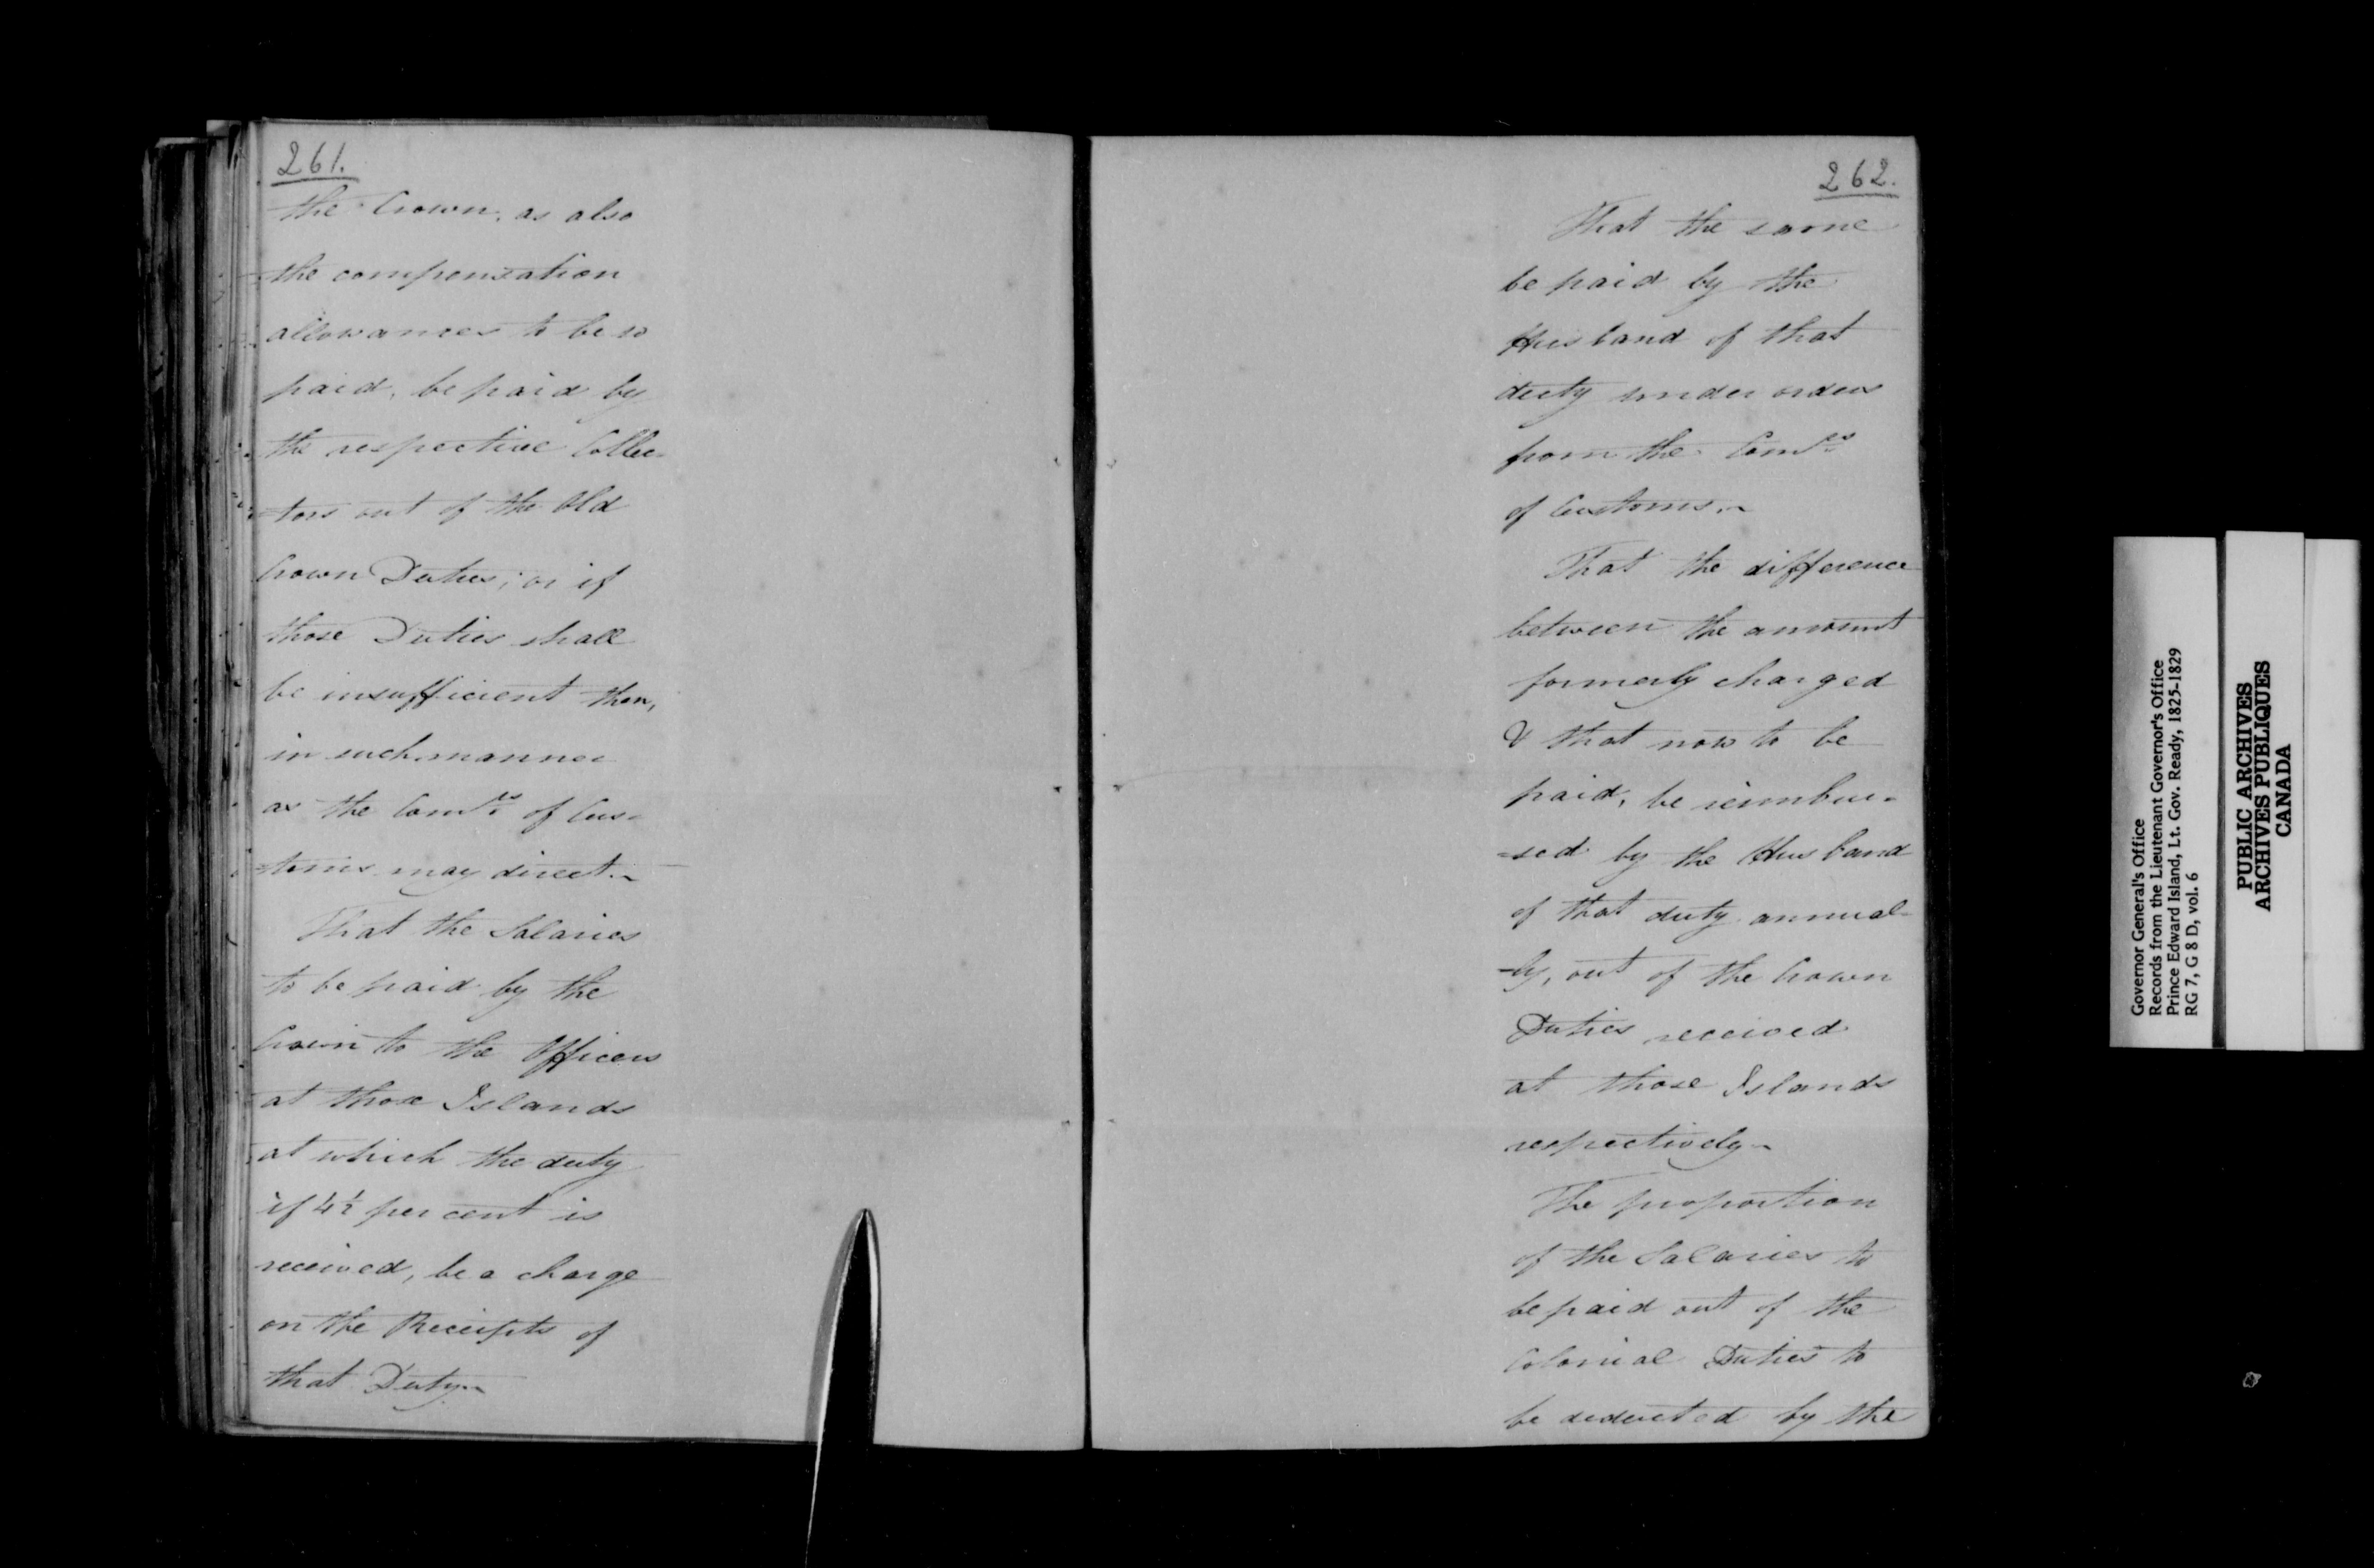 261.
the Crown, as also
the compensation
allowances to be so
paid, be paid by
the respective Collec-
-tors out of the Old
Crown Duties; or if
those Duties shall
be insufficient then,
in such manner
as the Comrs of Cus-
-toms may direct.~
That the Salaries
to be paid by the
Crown to the Officers
at those Islands
at which the duty
of 4½ per cent is
received, be a charge
on the Receipts of
that Duty~
262.
That the same
be paid by the
Husband of that
duty under orders
from the Comrs
of Customs.~
That the difference
between the amount
formerly charged
& that now to be
paid, be reimbur-
-sed by the Husband
of that duty annual-
-ly, out of the Crown
Duties received
at those Islands
respectively~
The proportion
of the Salaries to
be paid out of the
Colonial Duties to
be deducted by the
Governor General's Office
Records from the Lieutenant Governor's Office
Prince Edward Island, Lt. Gov. Ready, 1825-1829
RG 7, G 8 D, vol. 6
PUBLIC ARCHIVES
ARCHIVES PUBLIQUES
CANADA